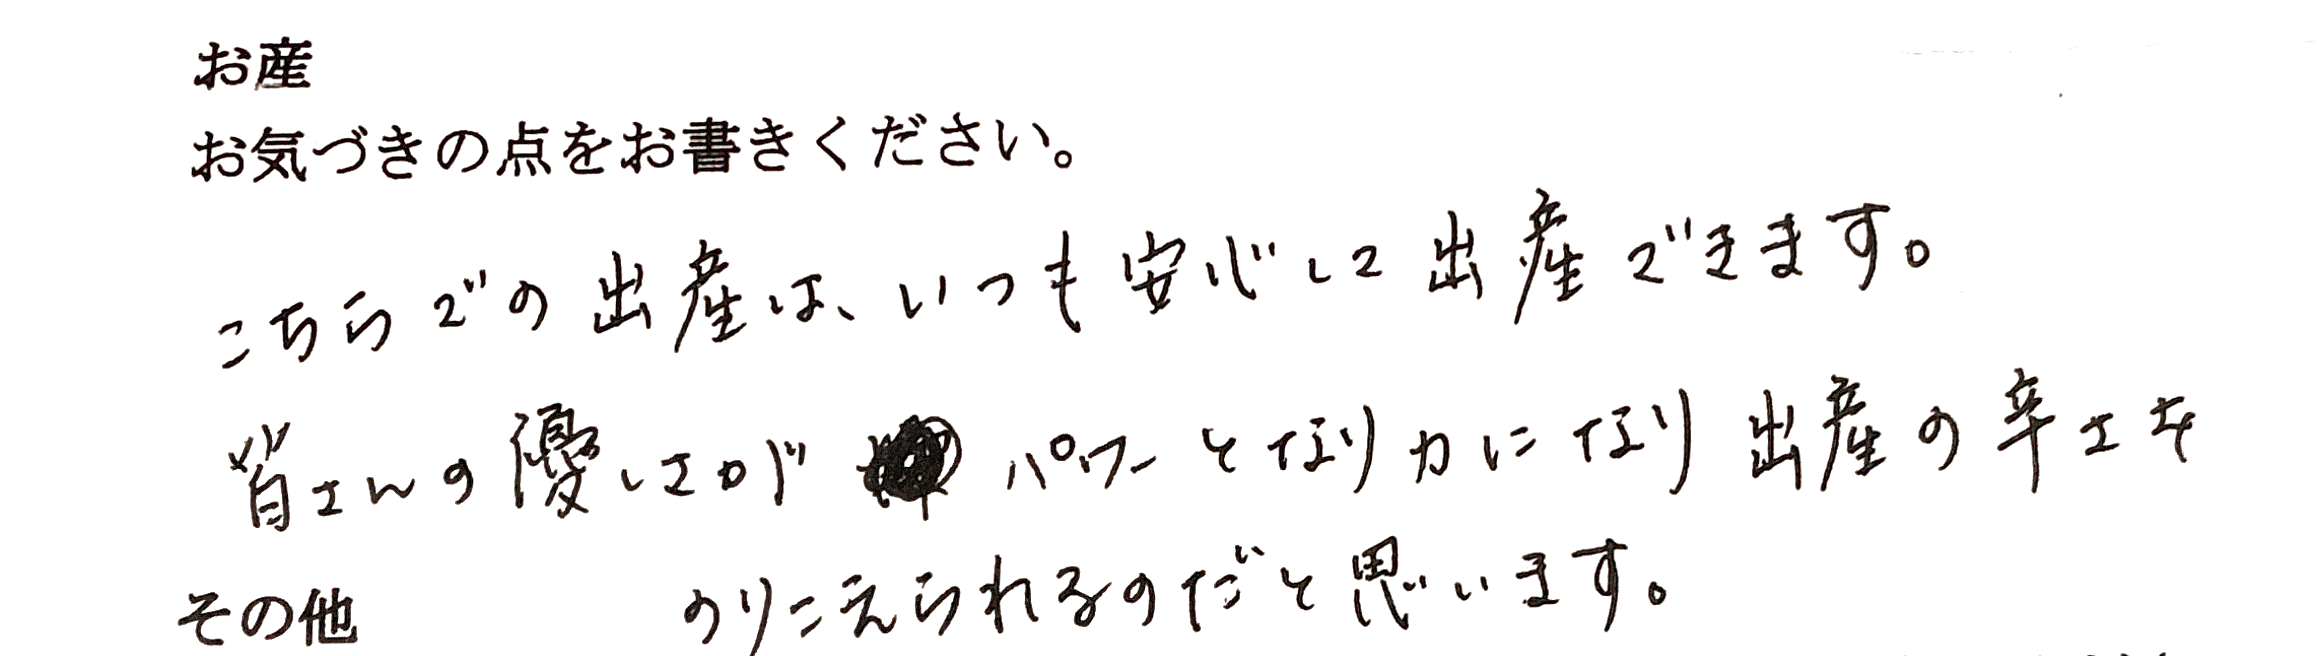 お産
お気づきの点をお書きください。
こちらでの出産は、いつも安心して出産できます。
皆さんの優しさが パワーとなり力になり出産の辛さを
その他 のりこえられるのだと思います。